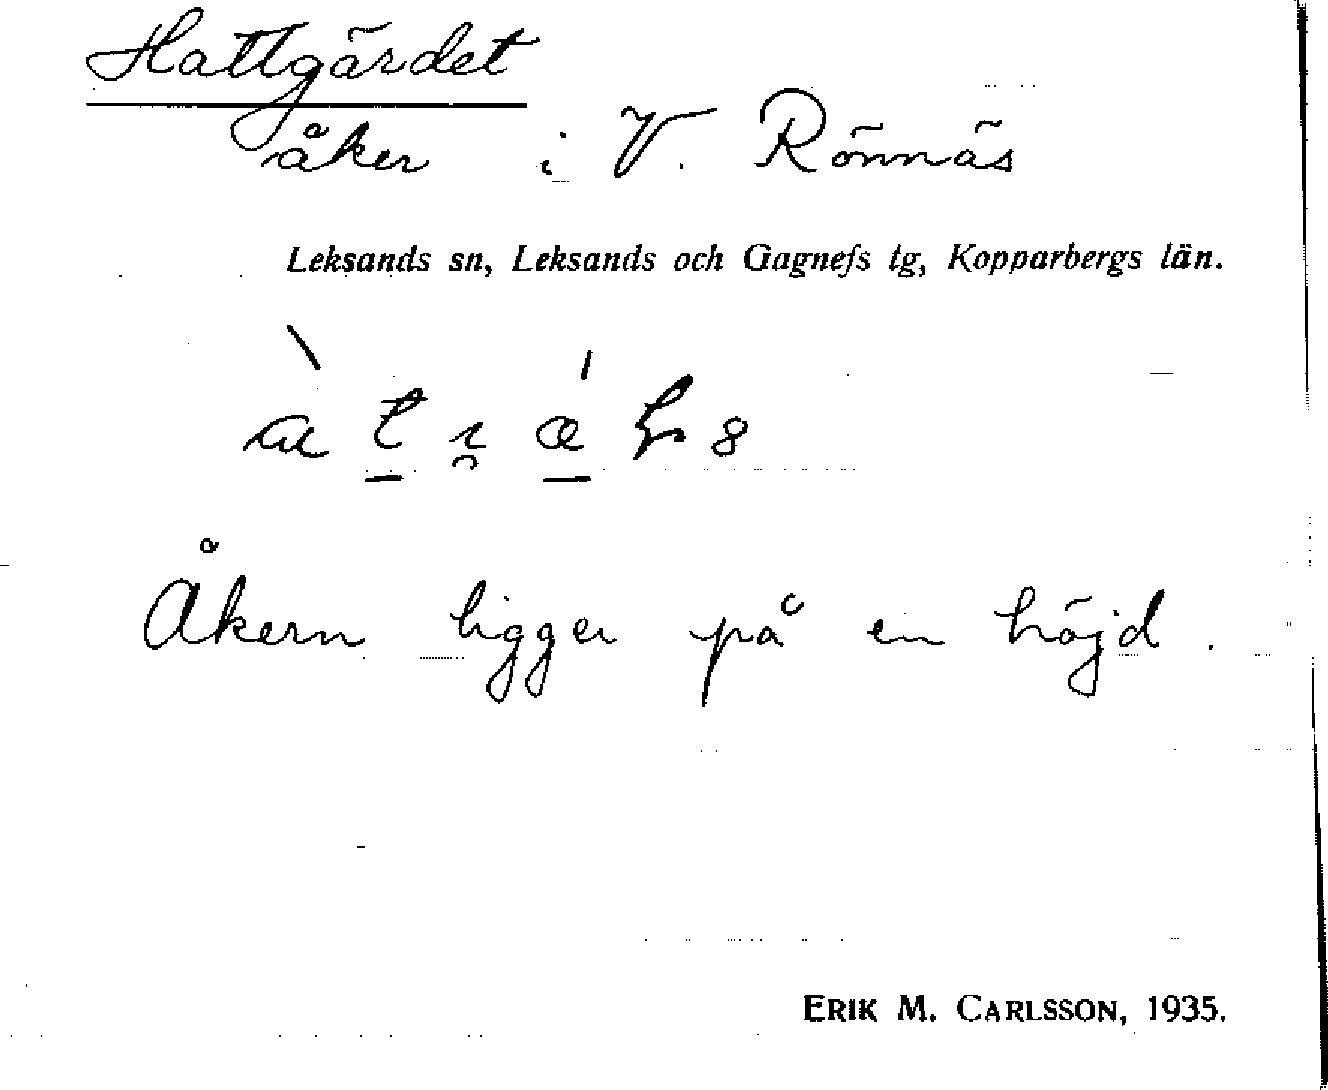 Hattgärdet
åker i V. Rönnäs
Leksands sn, Leksands och Gagnefs tg, Kopparbergs län.
Åkern ligger på en höjd.
ERIK M. CARLSSON, 1935.